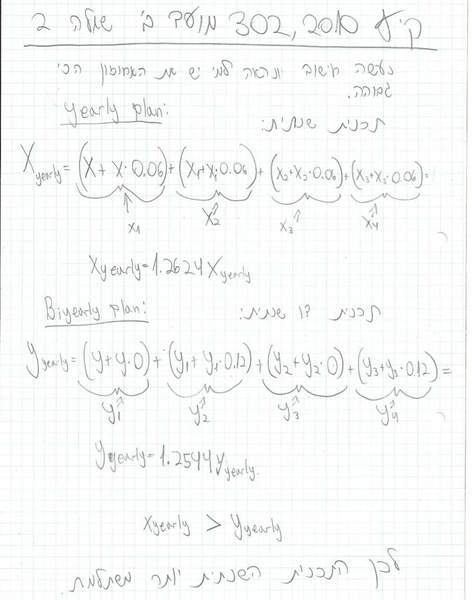 קיץ 2010, 302 מועד ב' שאלה 2
נעשה חישוב ונראה למי יש את האחוזון הכי
גבוהה.
yearly plan: תכנית שנתית:
X yearly = (X + X·0.06) + (X₁+X₁·0.06) + (X₂+X₂·0.06) + (X₃+X₃·0.06) =
X₁ X₂ X₃ X₄
X yearly = 1.2624 X yearly
Biyearly plan: תכנית דו שנתית:
Y yearly = (y + y·0) + (y₁ + y₁·0.12) + (y₂ + y₂·0) + (y₃+y₃·0.12) =
y₁ y₂ y₃ y₄
Y yearly = 1.2544 Y yearly.
X yearly > Y yearly
לכן התכנית השנתית יותר משתלמת.